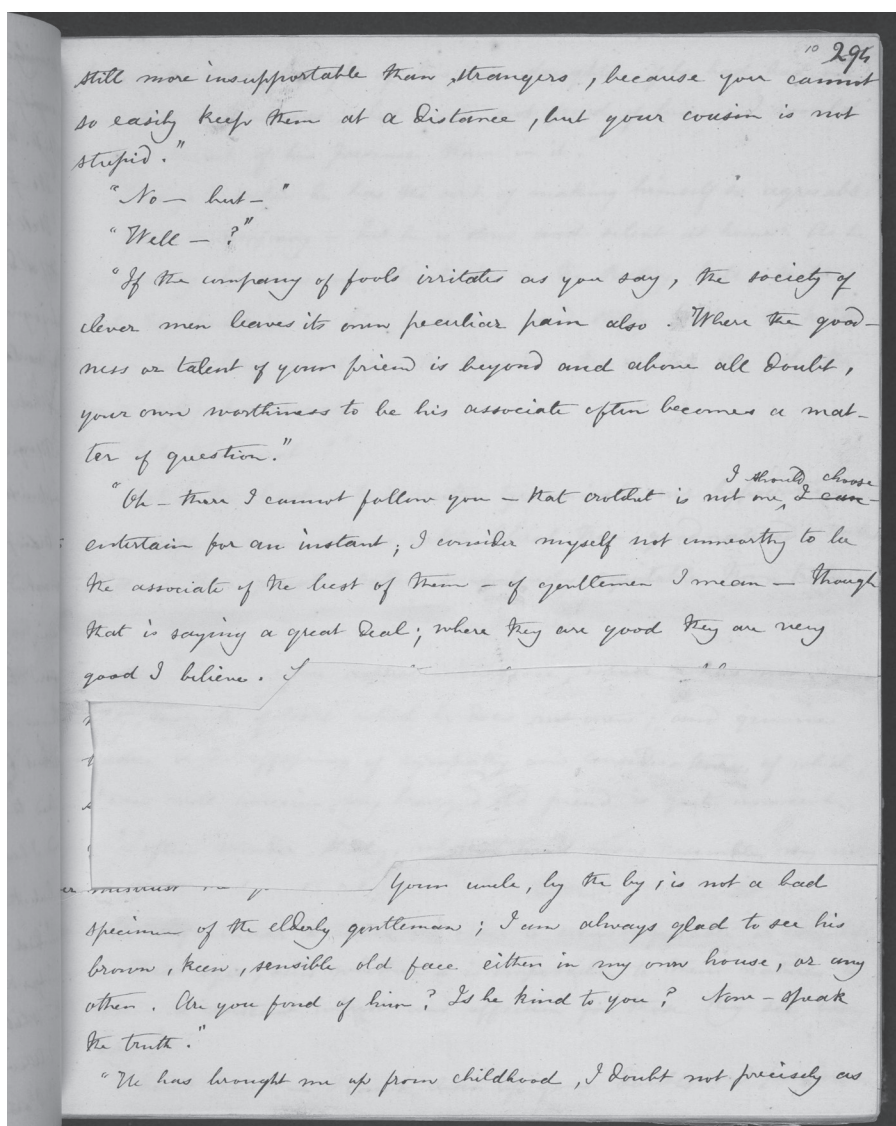 10 294
still more insupportable than strangers, because you cannot
so easily keep them at a distance, but your cousin is not
stupid."
"No — but —"
"Well — ?"
"If the company of fools irritates as you say, the society of
clever men leaves its own peculiar pain also. Where the good-
ness or talent of your friend is beyond and above all doubt,
your own worthiness to be his associate often becomes a mat-
ter of question."
I should choose
"Oh — there I cannot follow you — that crotchet is not one, I can
entertain for an instant; I consider myself not unworthy to be
the associate of the best of them — of gentlemen I mean — though
that is saying a great deal; where they are good they are very
good I believe.
mistrust Your uncle, by the by, is not a bad
specimen of the elderly gentleman; I am always glad to see his
brown, keen, sensible old face either in my own house, or any
other. Are you fond of him? Is he kind to you? Now — speak
the truth."
"He has brought me up from childhood, I doubt not precisely as